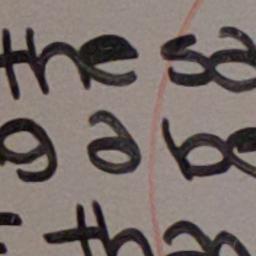 the sa
g a be
r tha